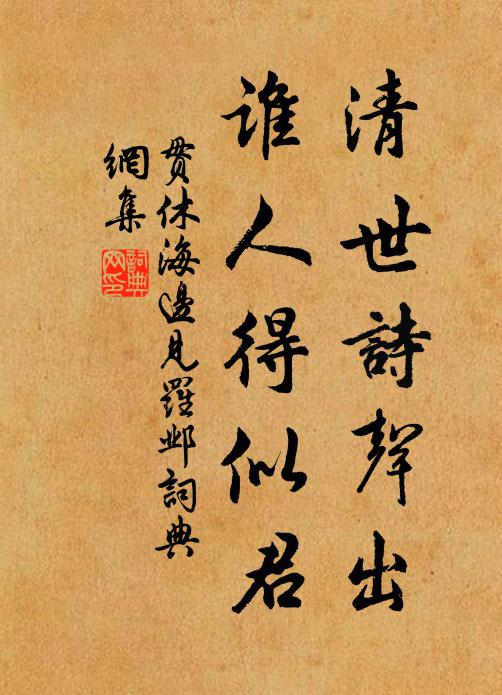 清世詩聲出
誰人得似君
貫休海邊見羅邺詞典
網集
詞典
网印